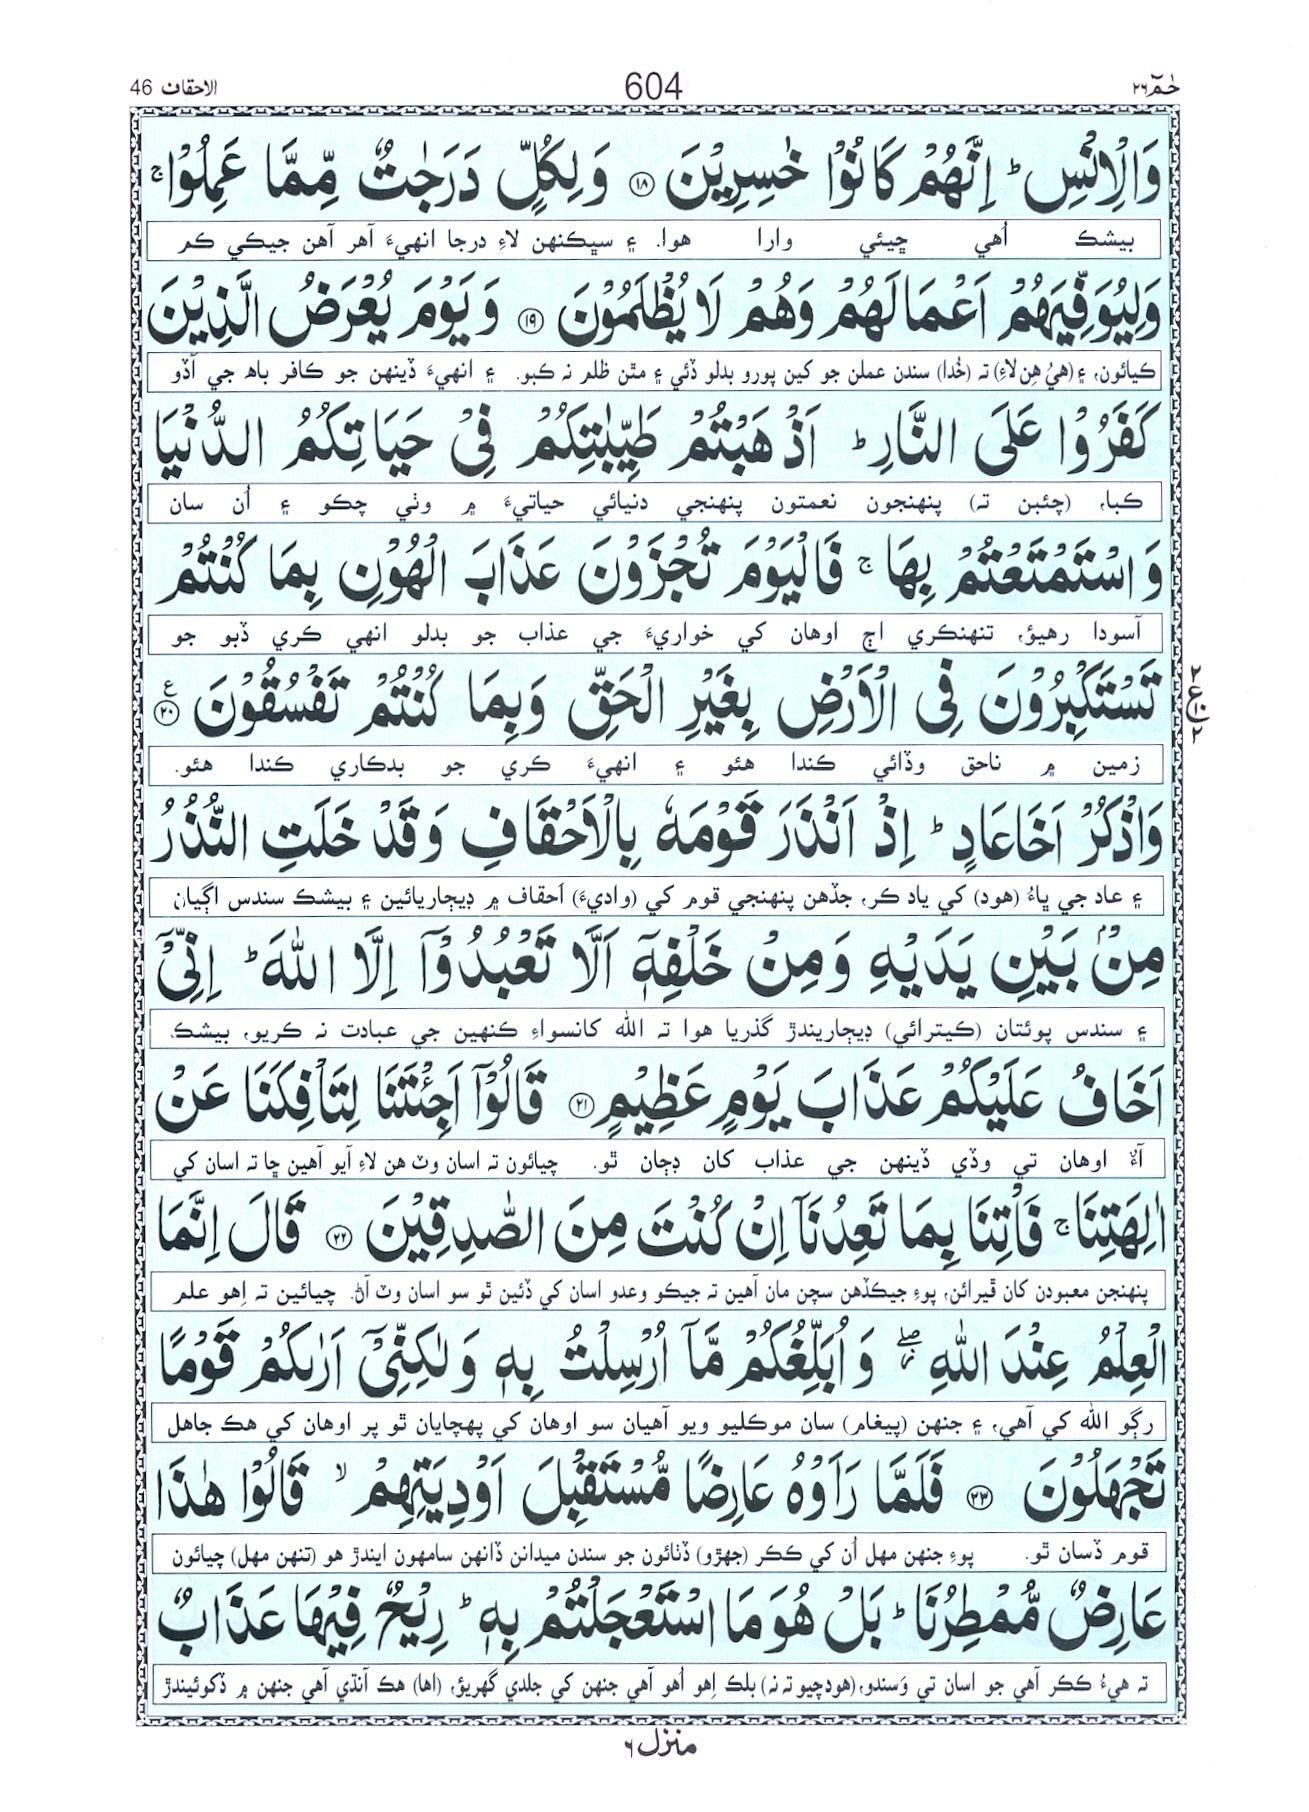 حٰمٓ ٢٦ 604 الاحقاف 46
وَالْاِنْسِ ؕ اِنَّهُمْ كَانُوْا خٰسِرِيْنَ ۝١٨ وَلِكُلٍّ دَرَجٰتٌ مِّمَّا عَمِلُوْا ۚ
بيشڪ اُهي ڇيئي وارا هوا. ۽ سڀڪنهن لاءِ درجا انهيءَ آهر آهن جيڪي ڪم
وَلِيُوَفِّيَهُمْ اَعْمَالَهُمْ وَهُمْ لَا يُظْلَمُوْنَ ۝١٩ وَيَوْمَ يُعْرَضُ الَّذِيْنَ
ڪيائون، ۽ (هيُ هِن لاءِ) ته (خُدا) سندن عملن جو کين پورو بدلو ڏئي ۽ مٿن ظلم نہ ڪبو. ۽ انهيءَ ڏينهن جو ڪافر باهہ جي آڏو
كَفَرُوْا عَلَى النَّارِ ؕ اَذْهَبْتُمْ طَيِّبٰتِكُمْ فِىْ حَيَاتِكُمُ الدُّنْيَا
ڪبا، (چئبن ته) پنهنجون نعمتون پنهنجي دنيائي حياتيءَ ۾ وٺي چڪو ۽ اُن سان
وَاسْتَمْتَعْتُمْ بِهَا ۚ فَالْيَوْمَ تُجْزَوْنَ عَذَابَ الْهُوْنِ بِمَا كُنْتُمْ
آسودا رهيؤ، تنهنڪري اڄ اوهان کي خواريءَ جي عذاب جو بدلو انهي ڪري ڏبو جو
تَسْتَكْبِرُوْنَ فِى الْاَرْضِ بِغَيْرِ الْحَقِّ وَبِمَا كُنْتُمْ تَفْسُقُوْنَ ۝٢٠ ع
زمين ۾ ناحق وڏائي ڪندا هئو ۽ انهيءَ ڪري جو بدڪاري ڪندا هئو.
وَاذْكُرْ اَخَا عَادٍ ؕ اِذْ اَنْذَرَ قَوْمَهٗ بِالْاَحْقَافِ وَقَدْ خَلَتِ النُّذُرُ
۽ عاد جي ڀاءُ (هود) کي ياد ڪر، جڏهن پنهنجي قوم کي (واديءَ) اَحقاف ۾ ڊيڄاريائين ۽ بيشڪ سندس اڳيان
مِنْۢ بَيْنِ يَدَيْهِ وَمِنْ خَلْفِهٖۤ اَلَّا تَعْبُدُوْۤا اِلَّا اللّٰهَ ؕ اِنِّىْۤ
۽ سندس پوئتان (ڪيترائي) ڊيڄاريندڙ گذريا هوا ته الله کانسواءِ ڪنهين جي عبادت نہ ڪريو، بيشڪ
اَخَافُ عَلَيْكُمْ عَذَابَ يَوْمٍ عَظِيْمٍ ۝٢١ قَالُوْۤا اَجِئْتَنَا لِتَاْفِكَنَا عَنْ
آءٌ اوهان تي وڏي ڏينهن جي عذاب کان ڊڄان ٿو. چيائون ته اسان وٽ هن لاءِ آيو آهين ڇا ته اسان کي
اٰلِهَتِنَا ۚ فَاْتِنَا بِمَا تَعِدُنَاۤ اِنْ كُنْتَ مِنَ الصّٰدِقِيْنَ ۝٢٢ قَالَ اِنَّمَا
پنهنجن معبودن کان ڦيرائن، پوءِ جيڪڏهن سچن مان آهين ته جيڪو وعدو اسان کي ڏئين ٿو سو اسان وٽ آڻ. چيائين ته اِهو علم
الْعِلْمُ عِنْدَ اللّٰهِ ۖ وَاُبَلِّغُكُمْ مَّاۤ اُرْسِلْتُ بِهٖ وَلٰكِنِّىْۤ اَرٰىكُمْ قَوْمًا
رڳو الله کي آهي، ۽ جنهن (پيغام) سان موڪليو ويو آهيان سو اوهان کي پهچايان ٿو پر اوهان کي هڪ جاهل
تَجْهَلُوْنَ ۝٢٣ فَلَمَّا رَاَوْهُ عَارِضًا مُّسْتَقْبِلَ اَوْدِيَتِهِمْ ۙ قَالُوْا هٰذَا
قوم ڏسان ٿو. پوءِ جنهن مهل اُن کي ڪڪر (جهڙو) ڏٺائون جو سندن ميدانن ڏانهن سامهون ايندڙ هو (تنهن مهل) چيائون
عَارِضٌ مُّمْطِرُنَا ؕ بَلْ هُوَ مَا اسْتَعْجَلْتُمْ بِهٖ ؕ رِيْحٌ فِيْهَا عَذَابٌ
ته هيءُ ڪڪر آهي جو اسان تي وَسندو، (هود چيو ته نه) بلڪ اِهو اُهو آهي جنهن کي جلدي گهريؤ، (اها) هڪ آنڌي آهي جنهن ۾ ڏکوئيندڙ
منزل ٦